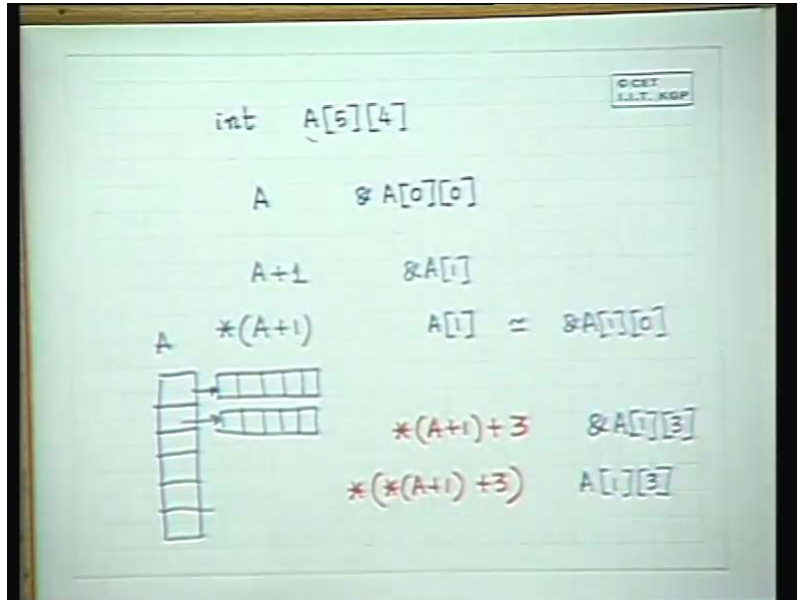 © CET
I.I.T. KGP
int A[5][4]
A &A[0][0]
A+1 &A[1]
*(A+1) A[1] ≃ &A[1][0]
A
*(A+1)+3 &A[1][3]
*(*(A+1)+3) A[1][3]